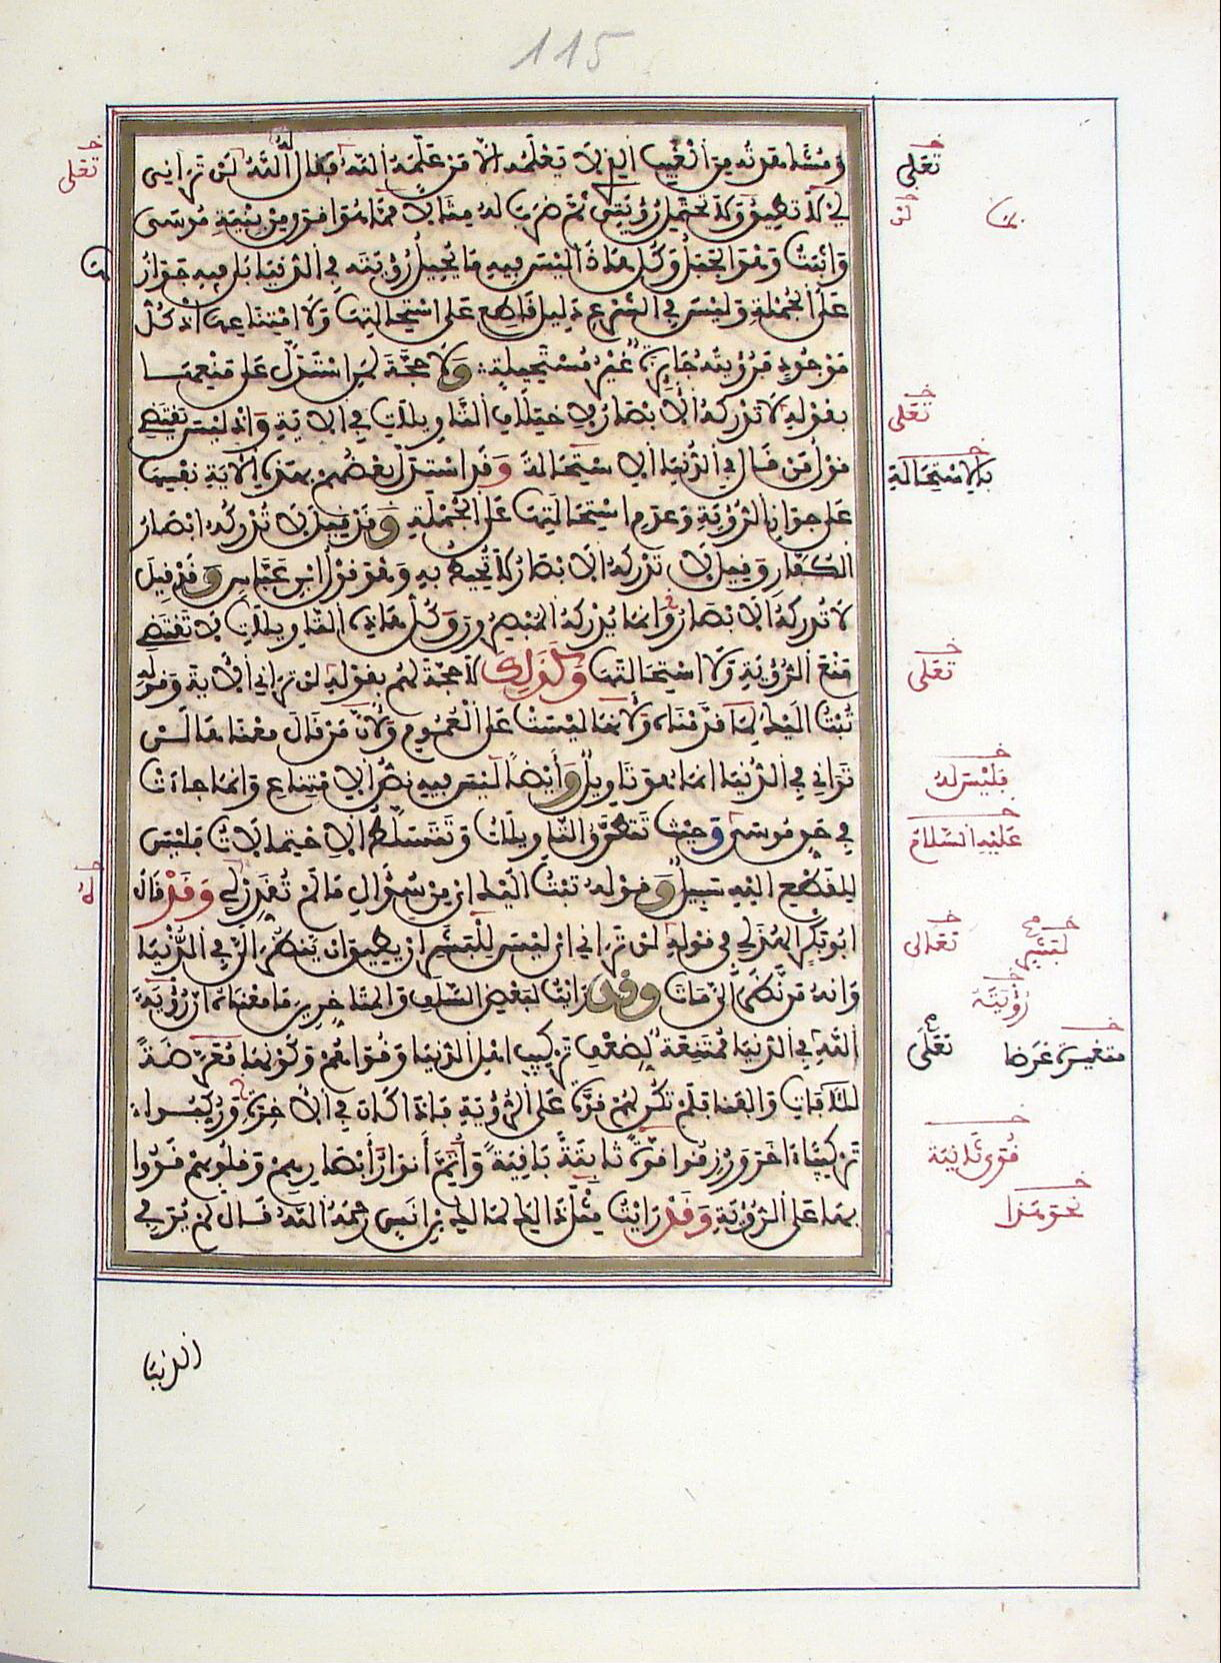 115
ومشاهدته من الغيب الذي لا يعلمه الا من علمه الله فقال الله لن تراني
اي لا تطيق ولا تحتمل رؤيتي ثم ضرب له مثالا مما هو اقوى من بنية موسى
واثبت وهو الجبل وكل هذا ليس فيه ما يحيل رؤيته في الدنيا بل فيه جوازها
على الجملة وليس في الشرع دليل قاطع على استحالتها ولا امتناعها اذ كل
موجود فرؤيته جايزة غير مستحيلة ولا حجة لمن استدل على منعها
بقوله لا تدركه الابصار لاختلاف التاويلات في الاية واذ ليس يقتضي
قول من قال في الدنيا الاستحالة وقد استدل بعضهم بهذه الاية نفسها
على جواز الرؤية وعدم استحالتها على الجملة وقد قيل لا تدركه ابصار
الكفار وقيل لا تدركه الابصار لا تحيط به وهو قول ابن عباس وقد قيل
لا تدركه الابصار وانما يدركه المبصرون وكل هذه التاويلات لا تقتضي
منع الرؤية ولا استحالتها وكذلك لا حجة لهم بقوله لن تراني الاية وقوله
تبت اليك لما قدمناه ولانها ليست على العموم ولان من قال معناها لن
تراني في الدنيا انما هو تاويل وايضا ليس فيه نص الامتناع وانما جاءت
في حق موسى وحيث تتطرق التاويلات وتتسلط الاحتمالات فليس
للقطع اليه سبيل وقوله تبت اليك اي من سؤالي ما لم تقدره لي وقد قال
ابو بكر الهذلي في قوله لن تراني اي ليس للبشر ان يطيق ان ينظر الي في الدنيا
وانه من نظر الي مات وقد رايت لبعض السلف والمتاخرين ما معناه ان رؤية
الله في الدنيا ممتنعة لضعف تركيب اهل الدنيا وقواهم وكونها معرضة
للافات والفنا فلم تكن لهم قوة على الرؤية فاذا كان في الاخرة وركبوا
تركيبا اخر ورزقوا قوة ثابتة باقية واتم انوار ابصارهم وقلوبهم قووا
بها على الرؤية وقد رايت مثل ذا لمالك بن انس رحمه الله قال لم ير في
الدنيا
تعلى
تعلى
لن
تعلى
بالاستحالة
تعلى
فليس له
عليه السلام
تعالى
لبشر
رؤيته
تعلى
متغيرة غرضا
قوى ثانية
نحو هذا